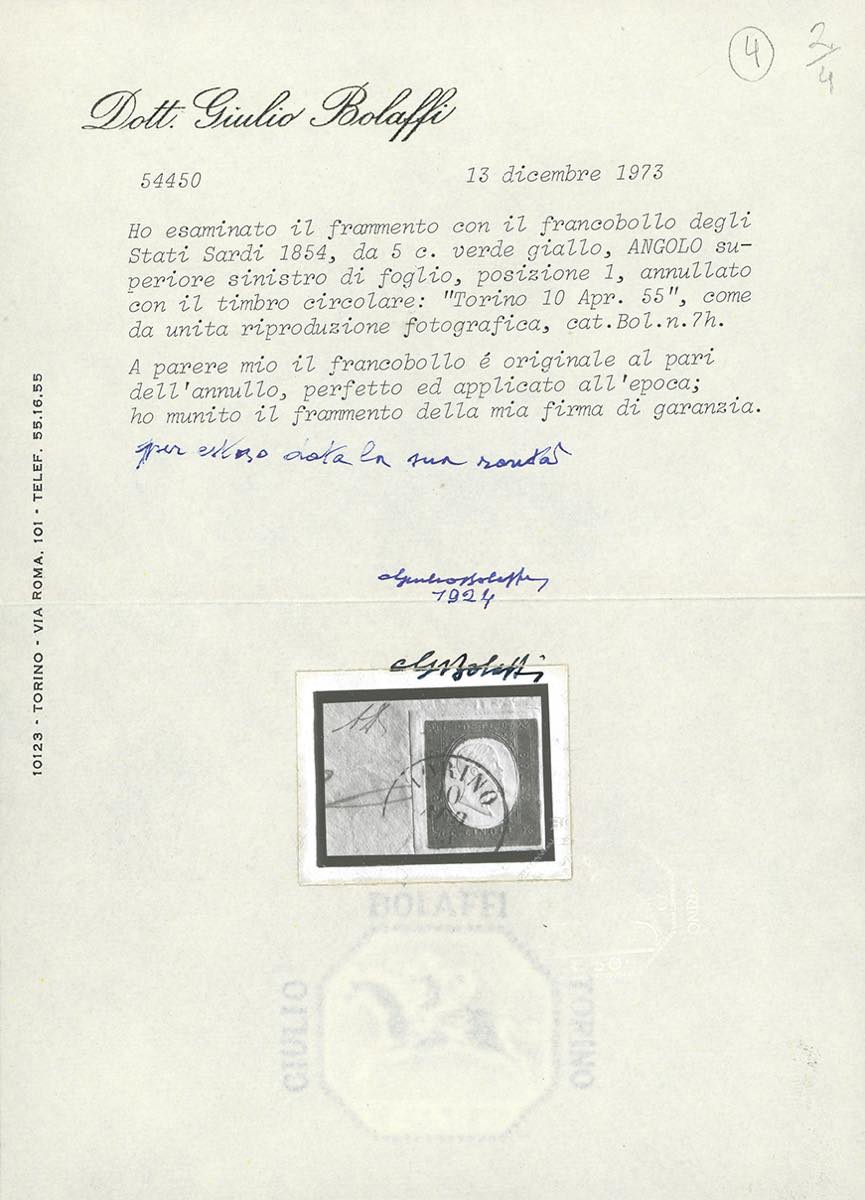 4
2/4
Dott. Giulio Bolaffi
54450
13 dicembre 1973
Ho esaminato il frammento con il francobollo degli
Stati Sardi 1854, da 5 c. verde giallo, ANGOLO su-
periore sinistro di foglio, posizione 1, annullato
con il timbro circolare: "Torino 10 Apr. 55", come
da unita riproduzione fotografica, cat.Bol.n.7h.
A parere mio il francobollo é originale al pari
dell'annullo, perfetto ed applicato all'epoca;
ho munito il frammento della mia firma di garanzia.
per esteso data la sua rarità
Giulio Bolaffi
1924
G Bolaffi
TORINO
10
10123 - TORINO - VIA ROMA, 101 - TELEF. 55.16.55
BOLAFFI
GIULIO
TORINO